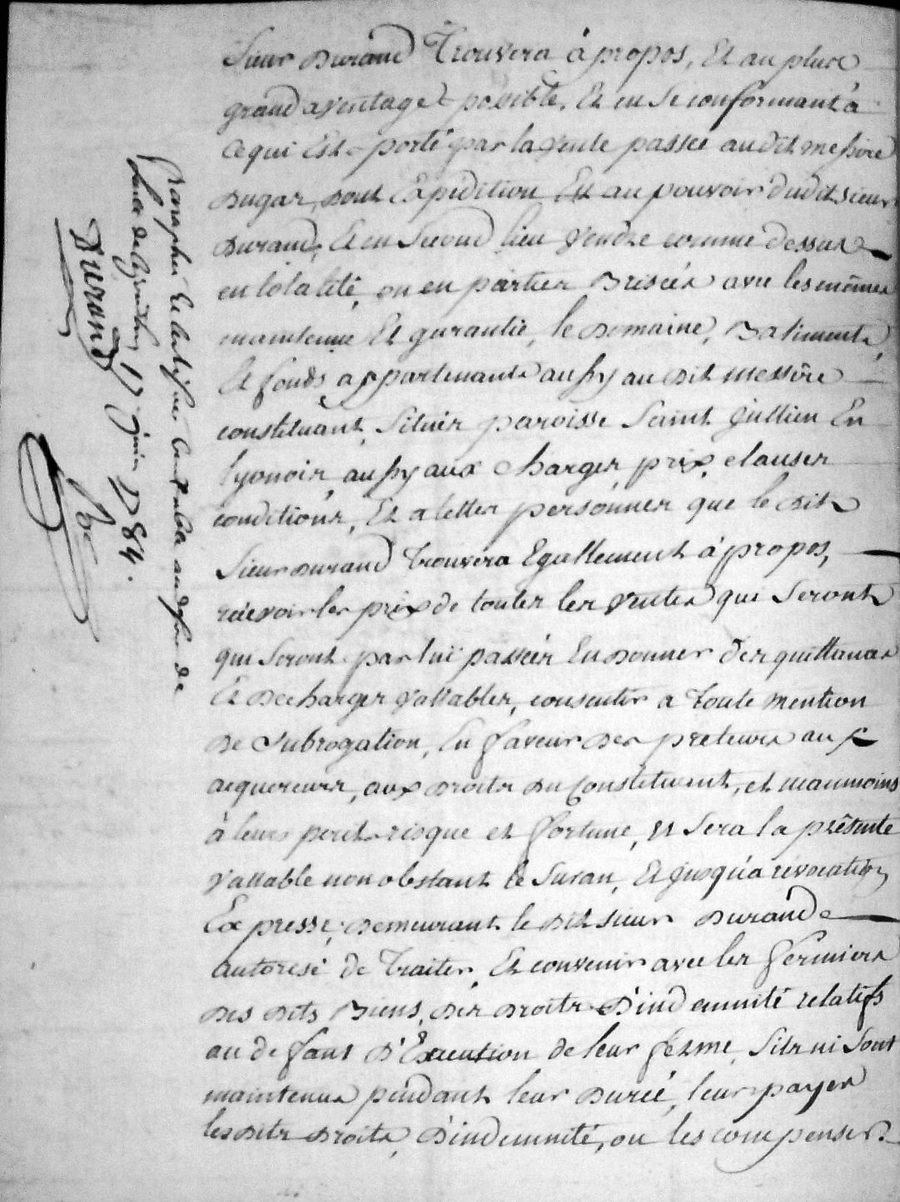 Sieur Durand Trouvera à propos, Et au plus
grand aventage possible, Et en se conformant à
ce qui Est porté par la vente passée audit messire
Dugar, dont Expedition Est au pouvoir dudit sieur
Durand, Et en Second lieu vendre comme dessus
en totalité ou en parties Brisées avec les mêmes
maintenue Et garantie, le Domaine, Batiments,
Et fonds appartenants aussy au dit messire
constituant, Situés paroisse Saint jullien En
lyonois, aussy aux charges, prix, clauses
conditions, Et a telles personnes que le dit
Sieur Durand Trouvera Egallement à propos,
recevoir les prix de toutes les ventes que Seront
qui Seront par lui passées En Donner des quittances
Et Decharges vallables, consentir a Toute mention
De Subrogation, En faveur des preteurs aux
acquereurs, aux Droits du Constituant, et neanmoins
à leurs perils risque et fortune, Et Sera la présente
vallable non obstant le Suran, Et jusqu'a revocation
Expresse, Demeurant le Dit sieur Durand
autorisé de Traiter, Et convenir avec les fermiers
Des dits Biens, Des Droits D'indemnité relatifs
au defaut D'Execution de leur ferme, S'ils ni Sont
maintenus pendant leur Durée, leur payer
les Dits Droits D'indemnité, ou les compenser
Paraphé Et Certifié au desir de
l'acte de 17 juin 1784.
Durand